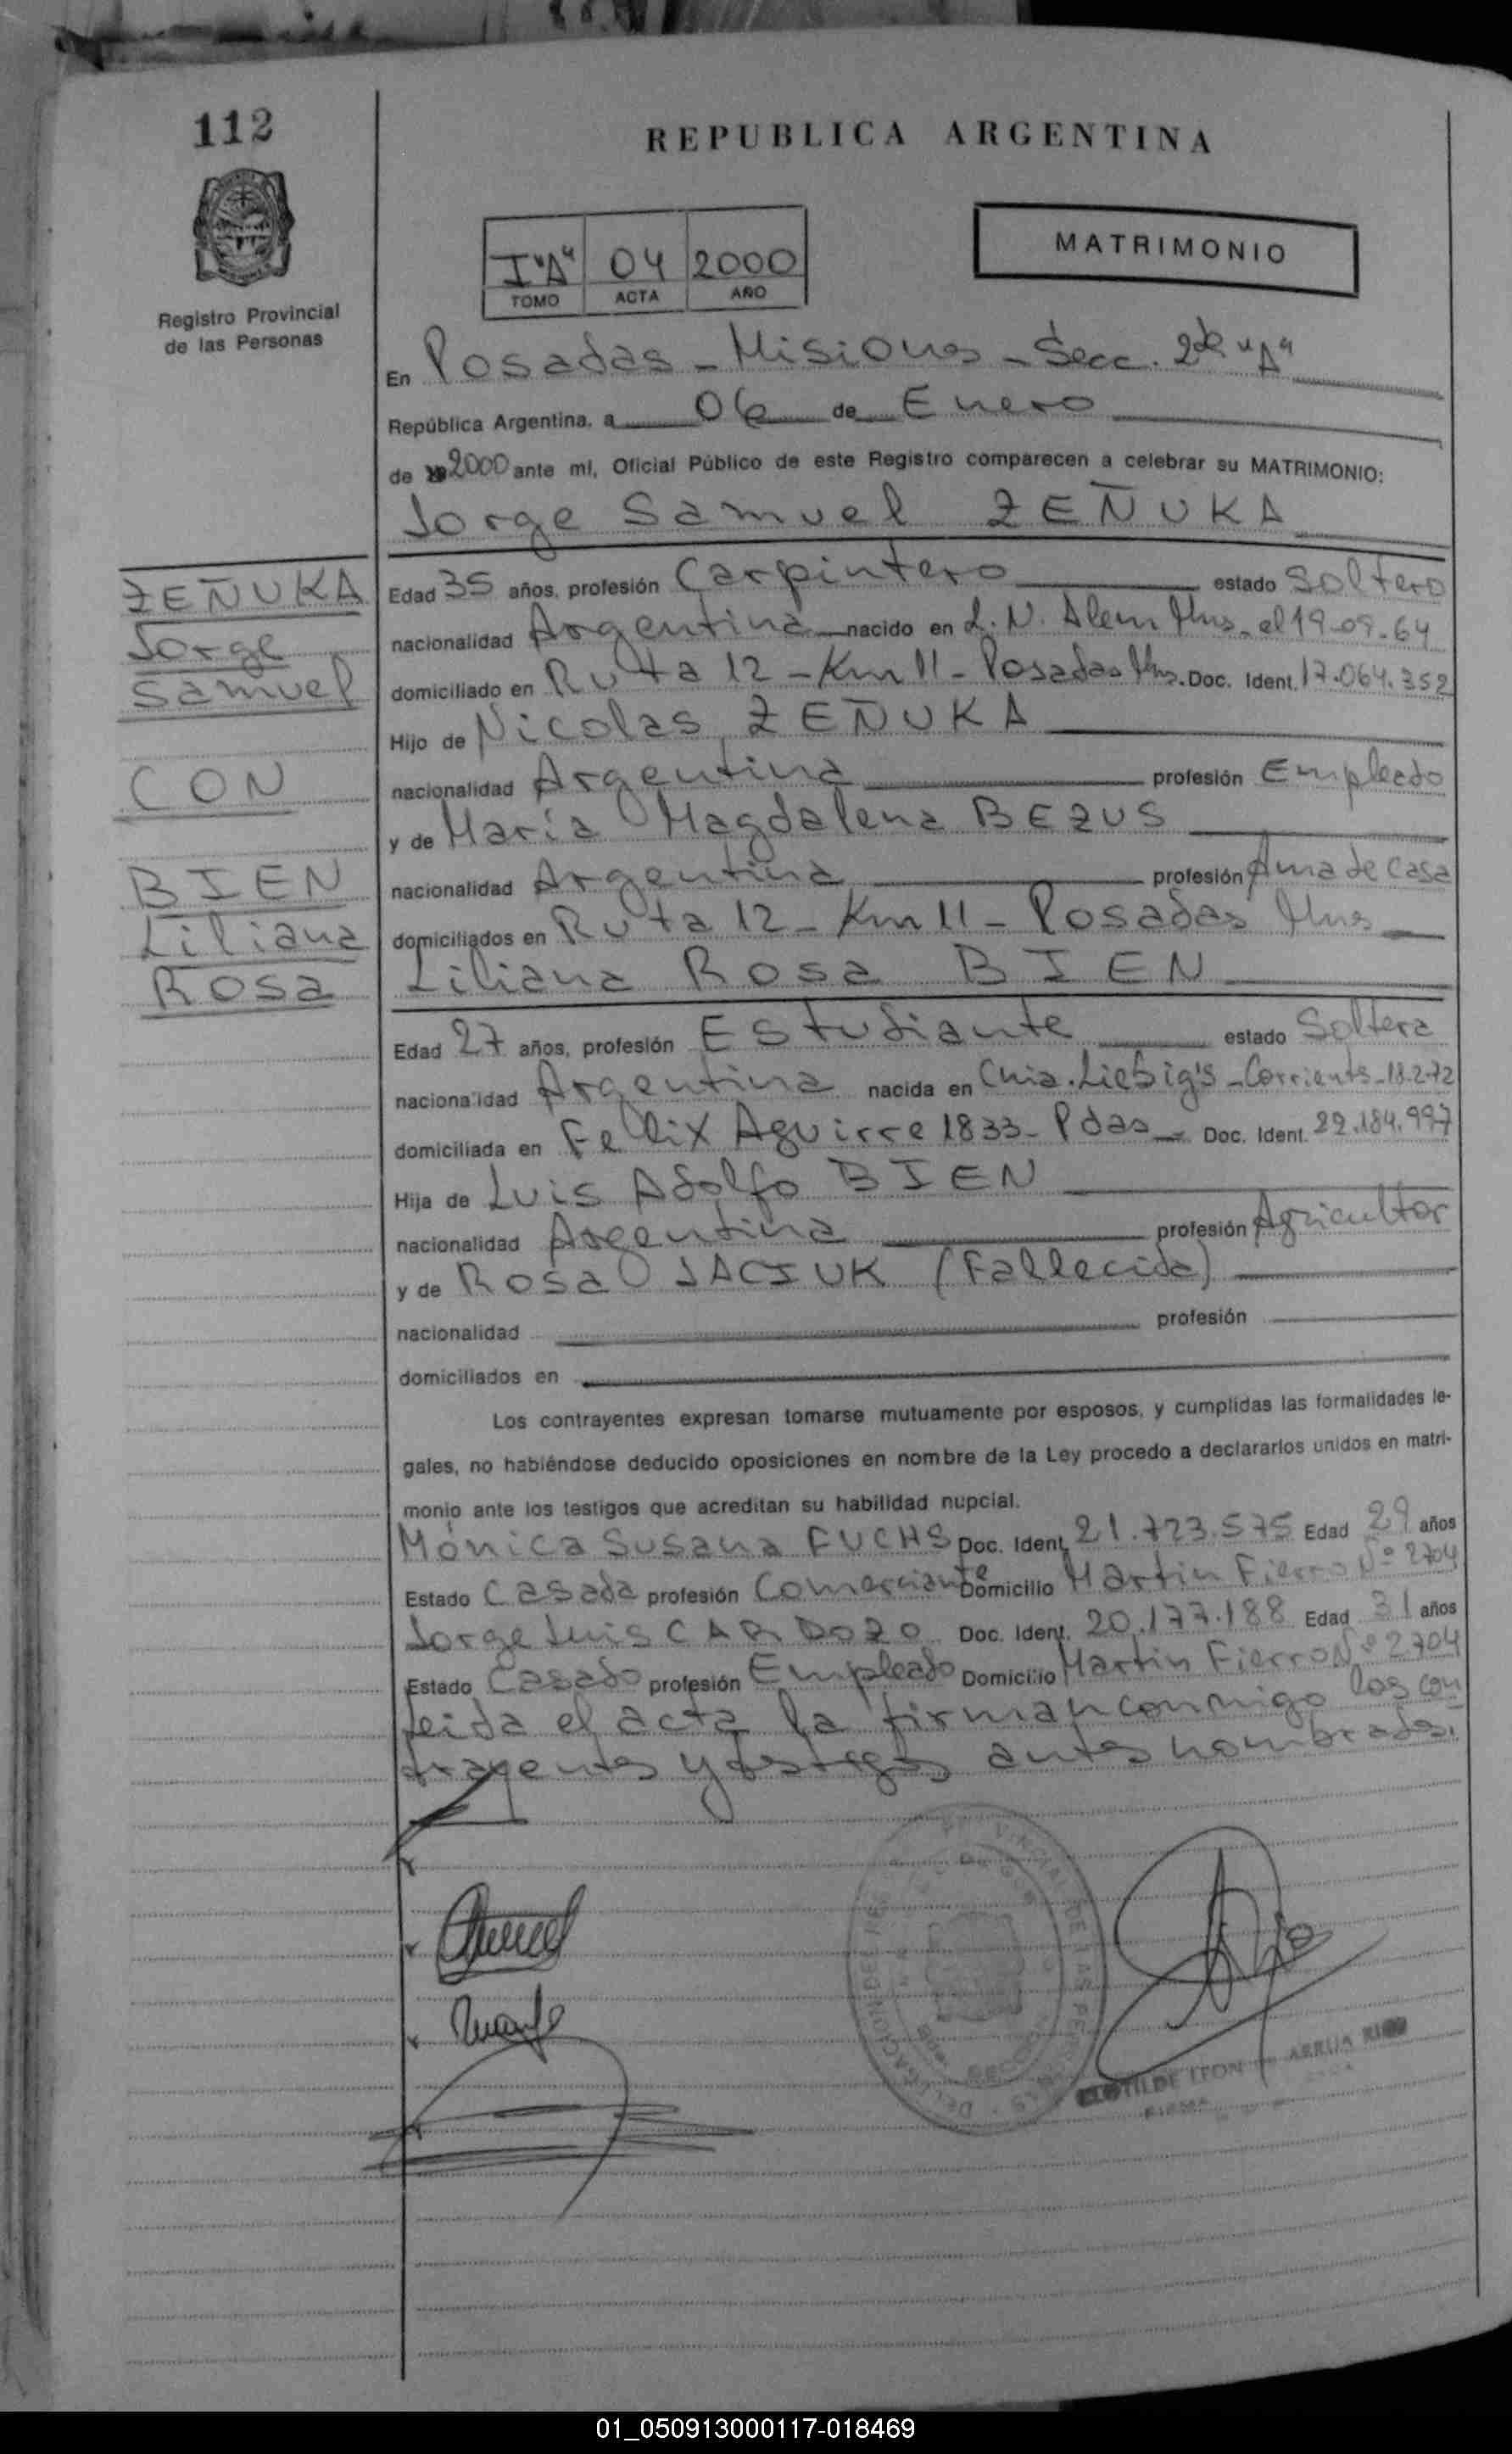 112
REPUBLICA ARGENTINA
I "A" 04 2000
TOMO ACTA AÑO
MATRIMONIO
Registro Provincial
de las Personas
En Posadas - Misiones - Secc. 2da "A"
República Argentina, a 06 de Enero
de 2000 ante mí, Oficial Público de este Registro comparecen a celebrar su MATRIMONIO:
Jorge Samuel ZEÑUKA
ZEÑUKA
Jorge
Samuel
CON
BIEN
Liliana
Rosa
Edad 35 años, profesión Carpintero estado Soltero
nacionalidad Argentina nacido en L. N. Alem Mns. el 19-09-64
domiciliado en Ruta 12 - Km 11 - Posadas Mns. Doc. Ident. 17.064.352
Hijo de Nicolas ZEÑUKA
nacionalidad Argentina profesión Empleado
y de María Magdalena BEZUS
nacionalidad Argentina profesión Ama de Casa
domiciliados en Ruta 12 - Km 11 - Posadas Mns
Liliana Rosa BIEN
Edad 27 años, profesión Estudiante estado Soltera
nacionalidad Argentina nacida en Cnia. Liebig's - Corrientes - 18-2-72
domiciliada en Fellix Aguirre 1833 - Pdas - Doc. Ident. 22.184.997
Hija de Luis Adolfo BIEN
nacionalidad Argentina profesión Agricultor
y de Rosa JACIUK (Fallecida)
nacionalidad profesión
domiciliados en
Los contrayentes expresan tomarse mutuamente por esposos, y cumplidas las formalidades le-
gales, no habiéndose deducido oposiciones en nombre de la Ley procedo a declararlos unidos en matri-
monio ante los testigos que acreditan su habilidad nupcial.
Mónica Susana FUCHS Doc. Ident. 21.723.575 Edad 29 años
Estado Casada profesión Comerciante Domicilio Martin Fierro Nº 2704
Jorge Luis CARDOZO Doc. Ident. 20.177.188 Edad 31 años
Estado Casado profesión Empleado Domicilio Martin Fierro Nº 2704
Leida el acta la firman conmigo los con
trayentes y testigos antes nombrados.
CLOTILDE LEON DE ARRUA
01_050913000117-018469